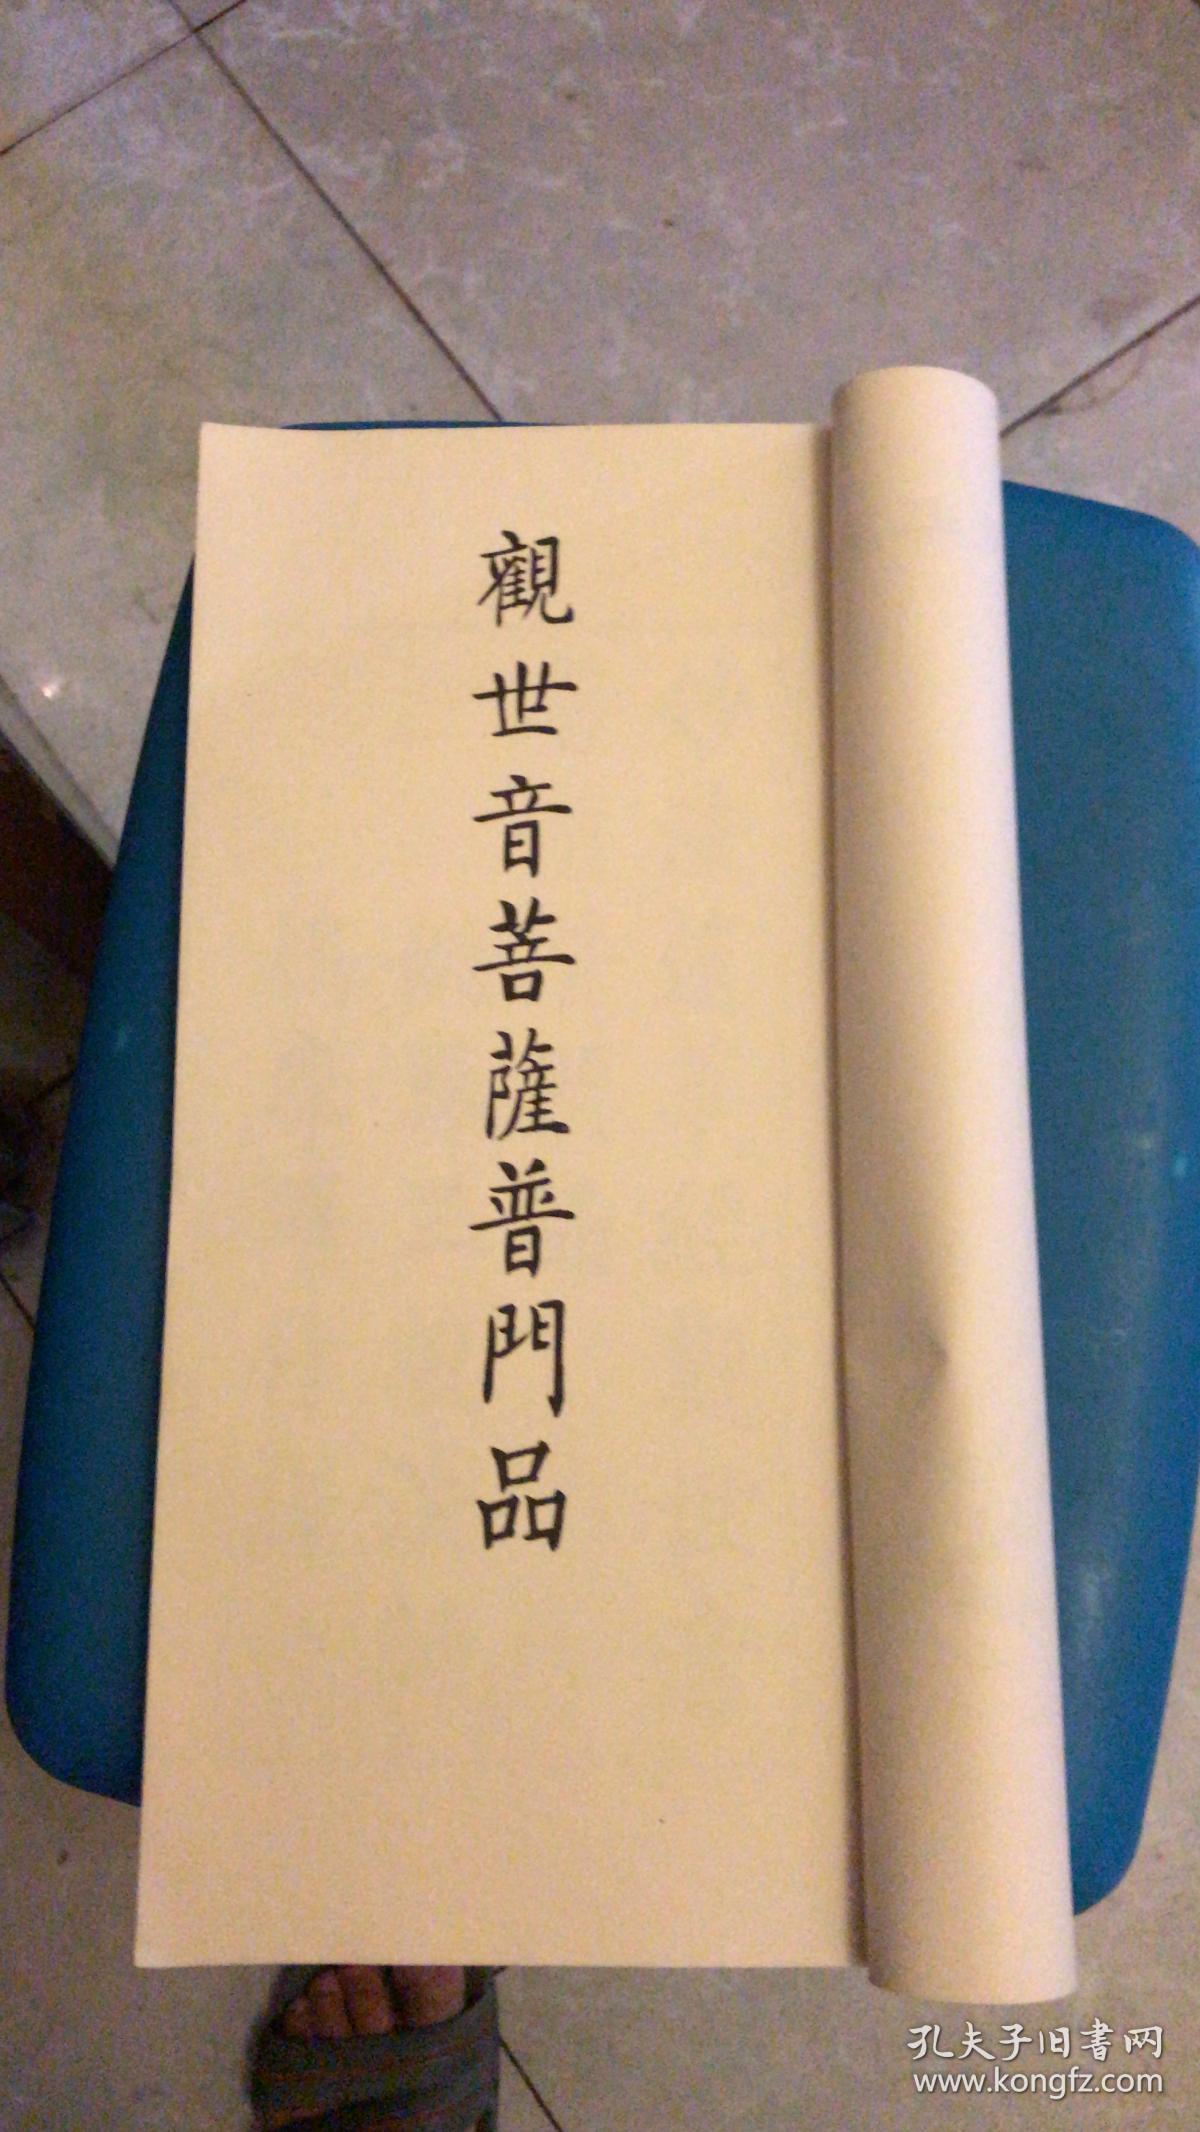 觀世音菩薩普門品
孔夫子旧書网
www.kongfz.com